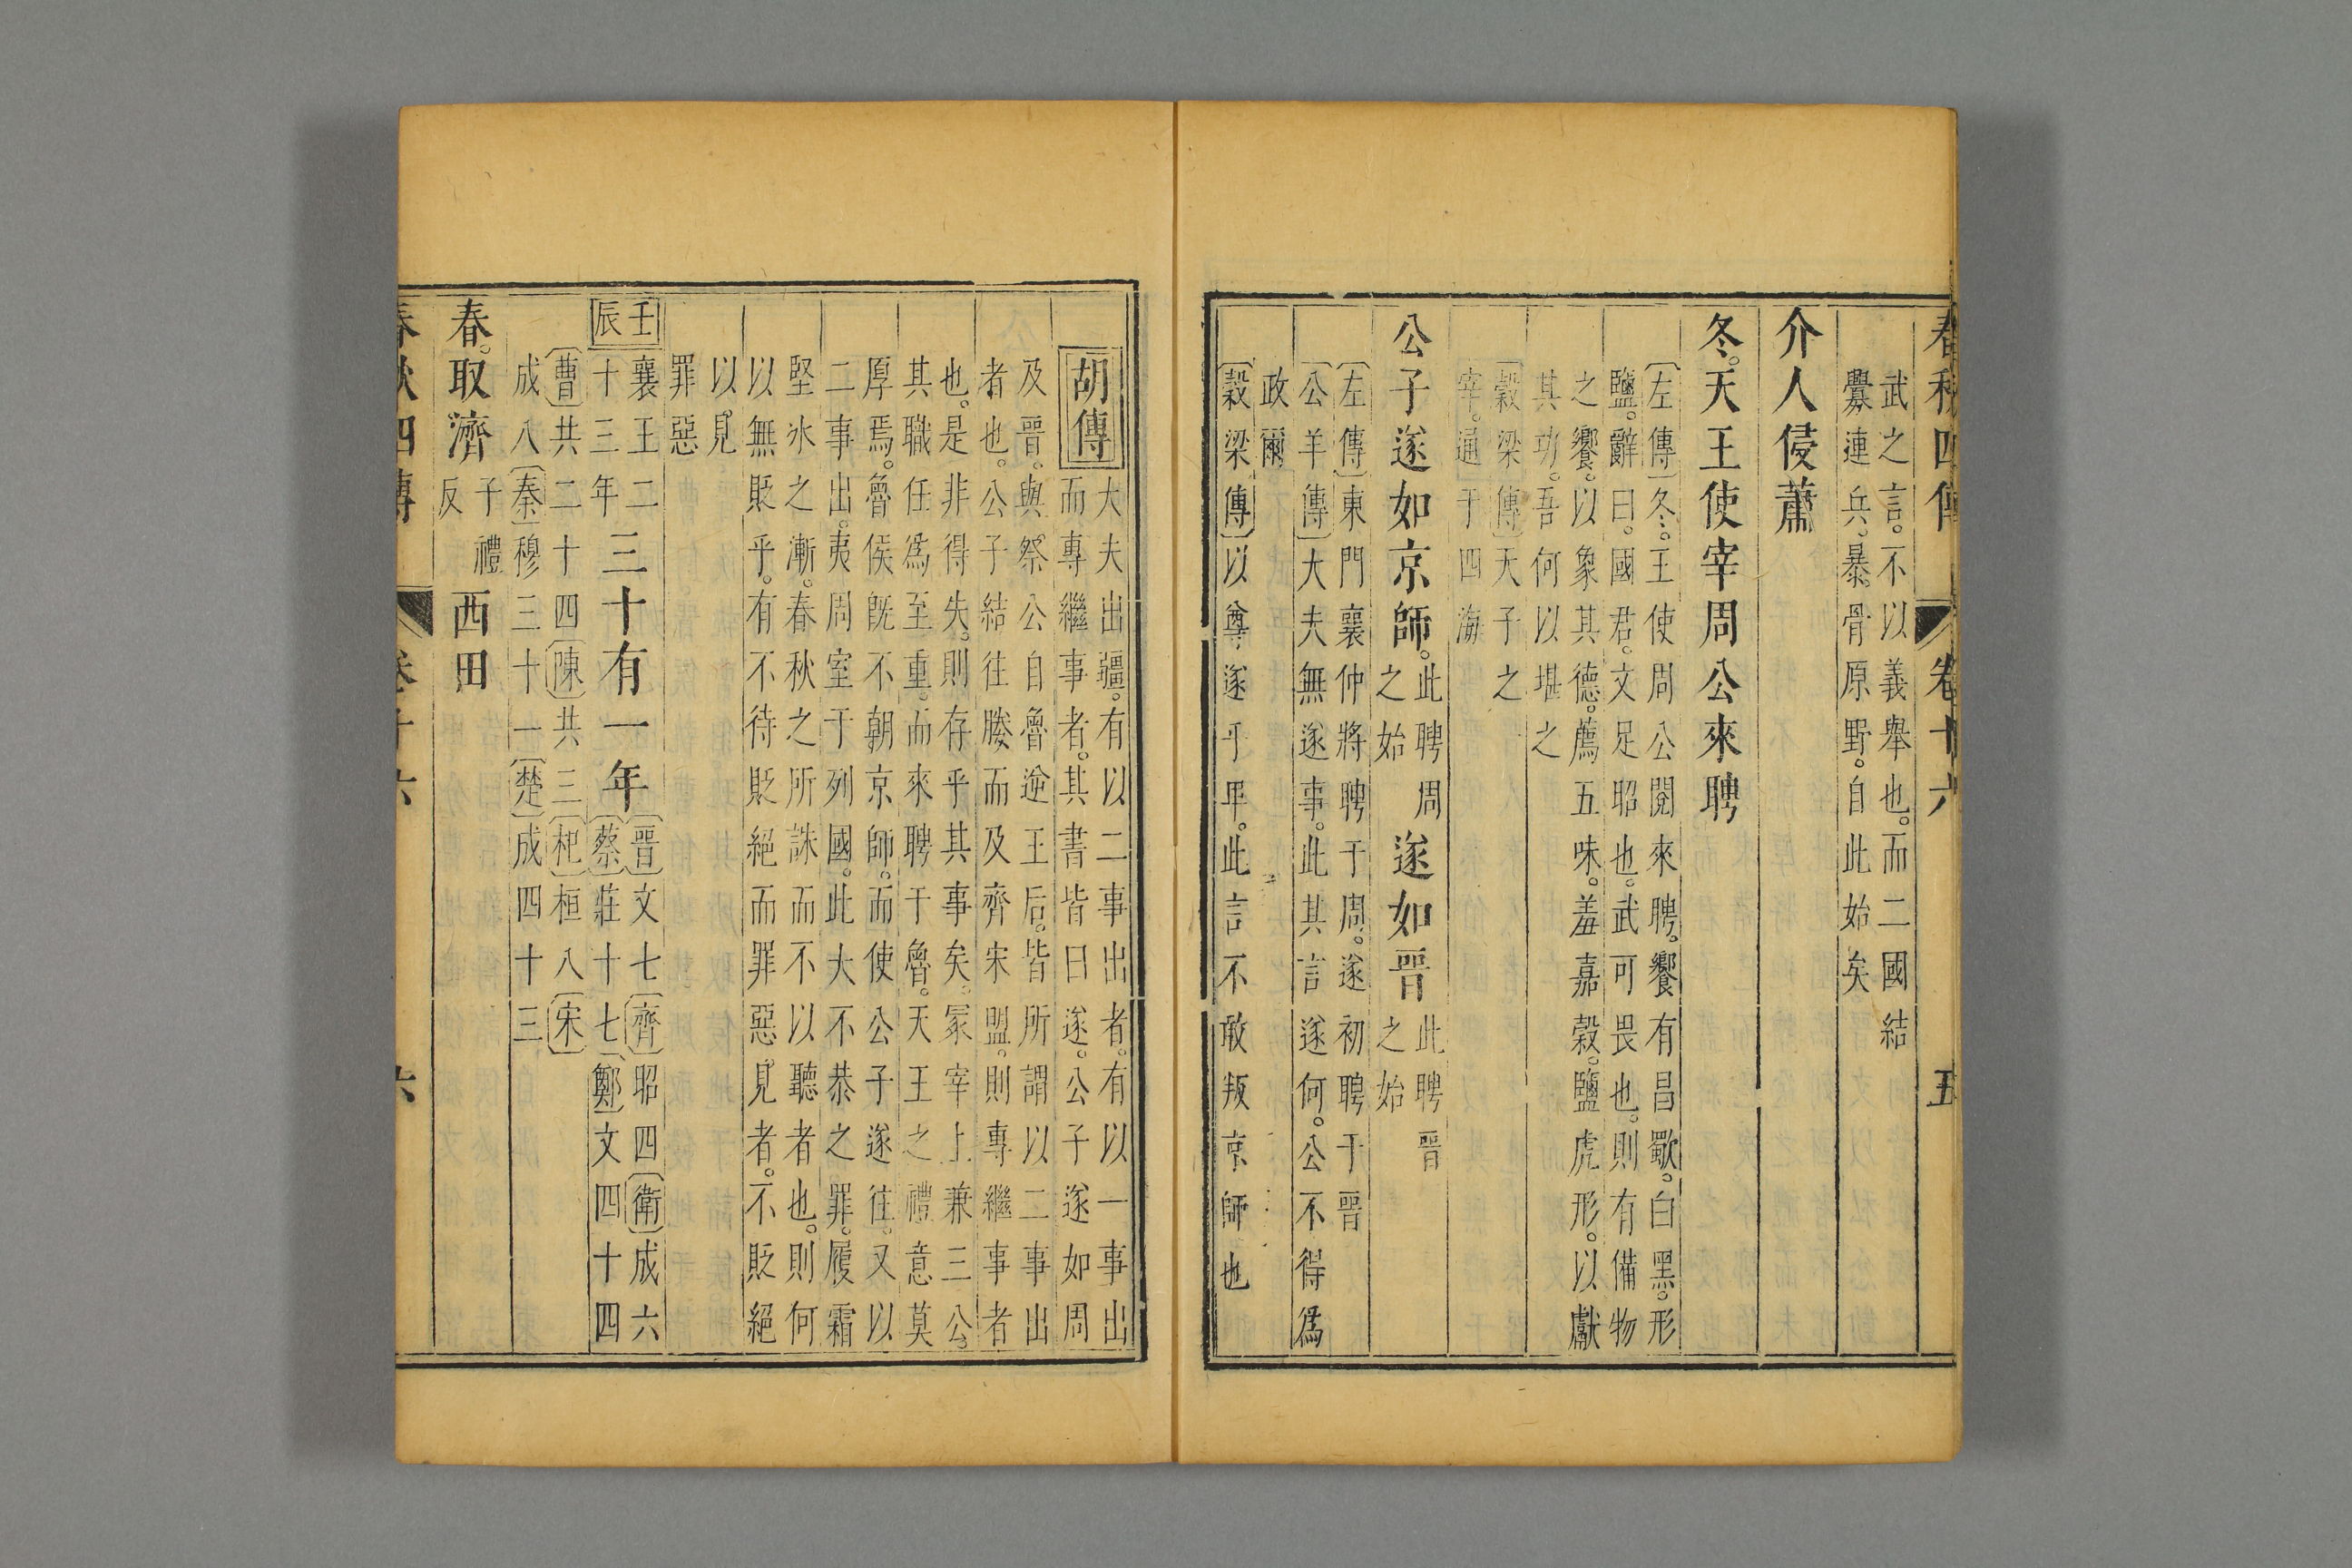 春秋四傳 卷十六 五
武之言。不以義舉也。而二國結
釁連兵。暴骨原野。自此始矣
介人侵蕭
冬。天王使宰周公來聘
〔左傳〕冬。王使周公閱來聘。饗有昌歜。白黑。形
鹽。辭曰。國君。文足昭也。武可畏也。則有備物
之饗。以象其德。薦五味。羞嘉穀。鹽虎形。以獻
其功。吾何以堪之
〔穀梁傳〕天子之
宰。通于四海
公子遂如京師。此聘周之始遂如晉此聘晉之始
〔左傳〕東門襄仲將聘于周。遂初聘于晉
〔公羊傳〕大夫無遂事。此其言遂何。公不得爲
政爾
〔穀梁傳〕以尊遂乎卑。此言不敢叛京師也
胡傳大夫出疆。有以二事出者。有以一事出
而專繼事者。其書皆曰遂。公子遂如周
及晉。與祭公自魯逆王后。皆所謂以二事出
者也。公子結往媵而及齊宋盟。則專繼事者
也。是非得失。則存乎其事矣。冡宰上兼三公。
其職任爲至重。而來聘于魯。天王之禮意莫
厚焉。魯侯旣不朝京師。而使公子遂往。又以
二事出。夷周室于列國。此大不恭之罪。履霜
堅冰之漸。春秋之所誅而不以聽者也。則何
以無貶乎。有不待貶絕而罪惡見者。不貶絕
以見
罪惡
壬辰襄王二十三年三十有一年〔晉〕文七〔齊〕昭四〔衛〕成六〔蔡〕莊十七〔鄭〕文四十四
〔曹〕共二十四〔陳〕共三〔杞〕桓八〔宋〕
成八〔秦〕穆三十一〔楚〕成四十三
春。取濟子禮反西田
春秋四傳 卷十六 六